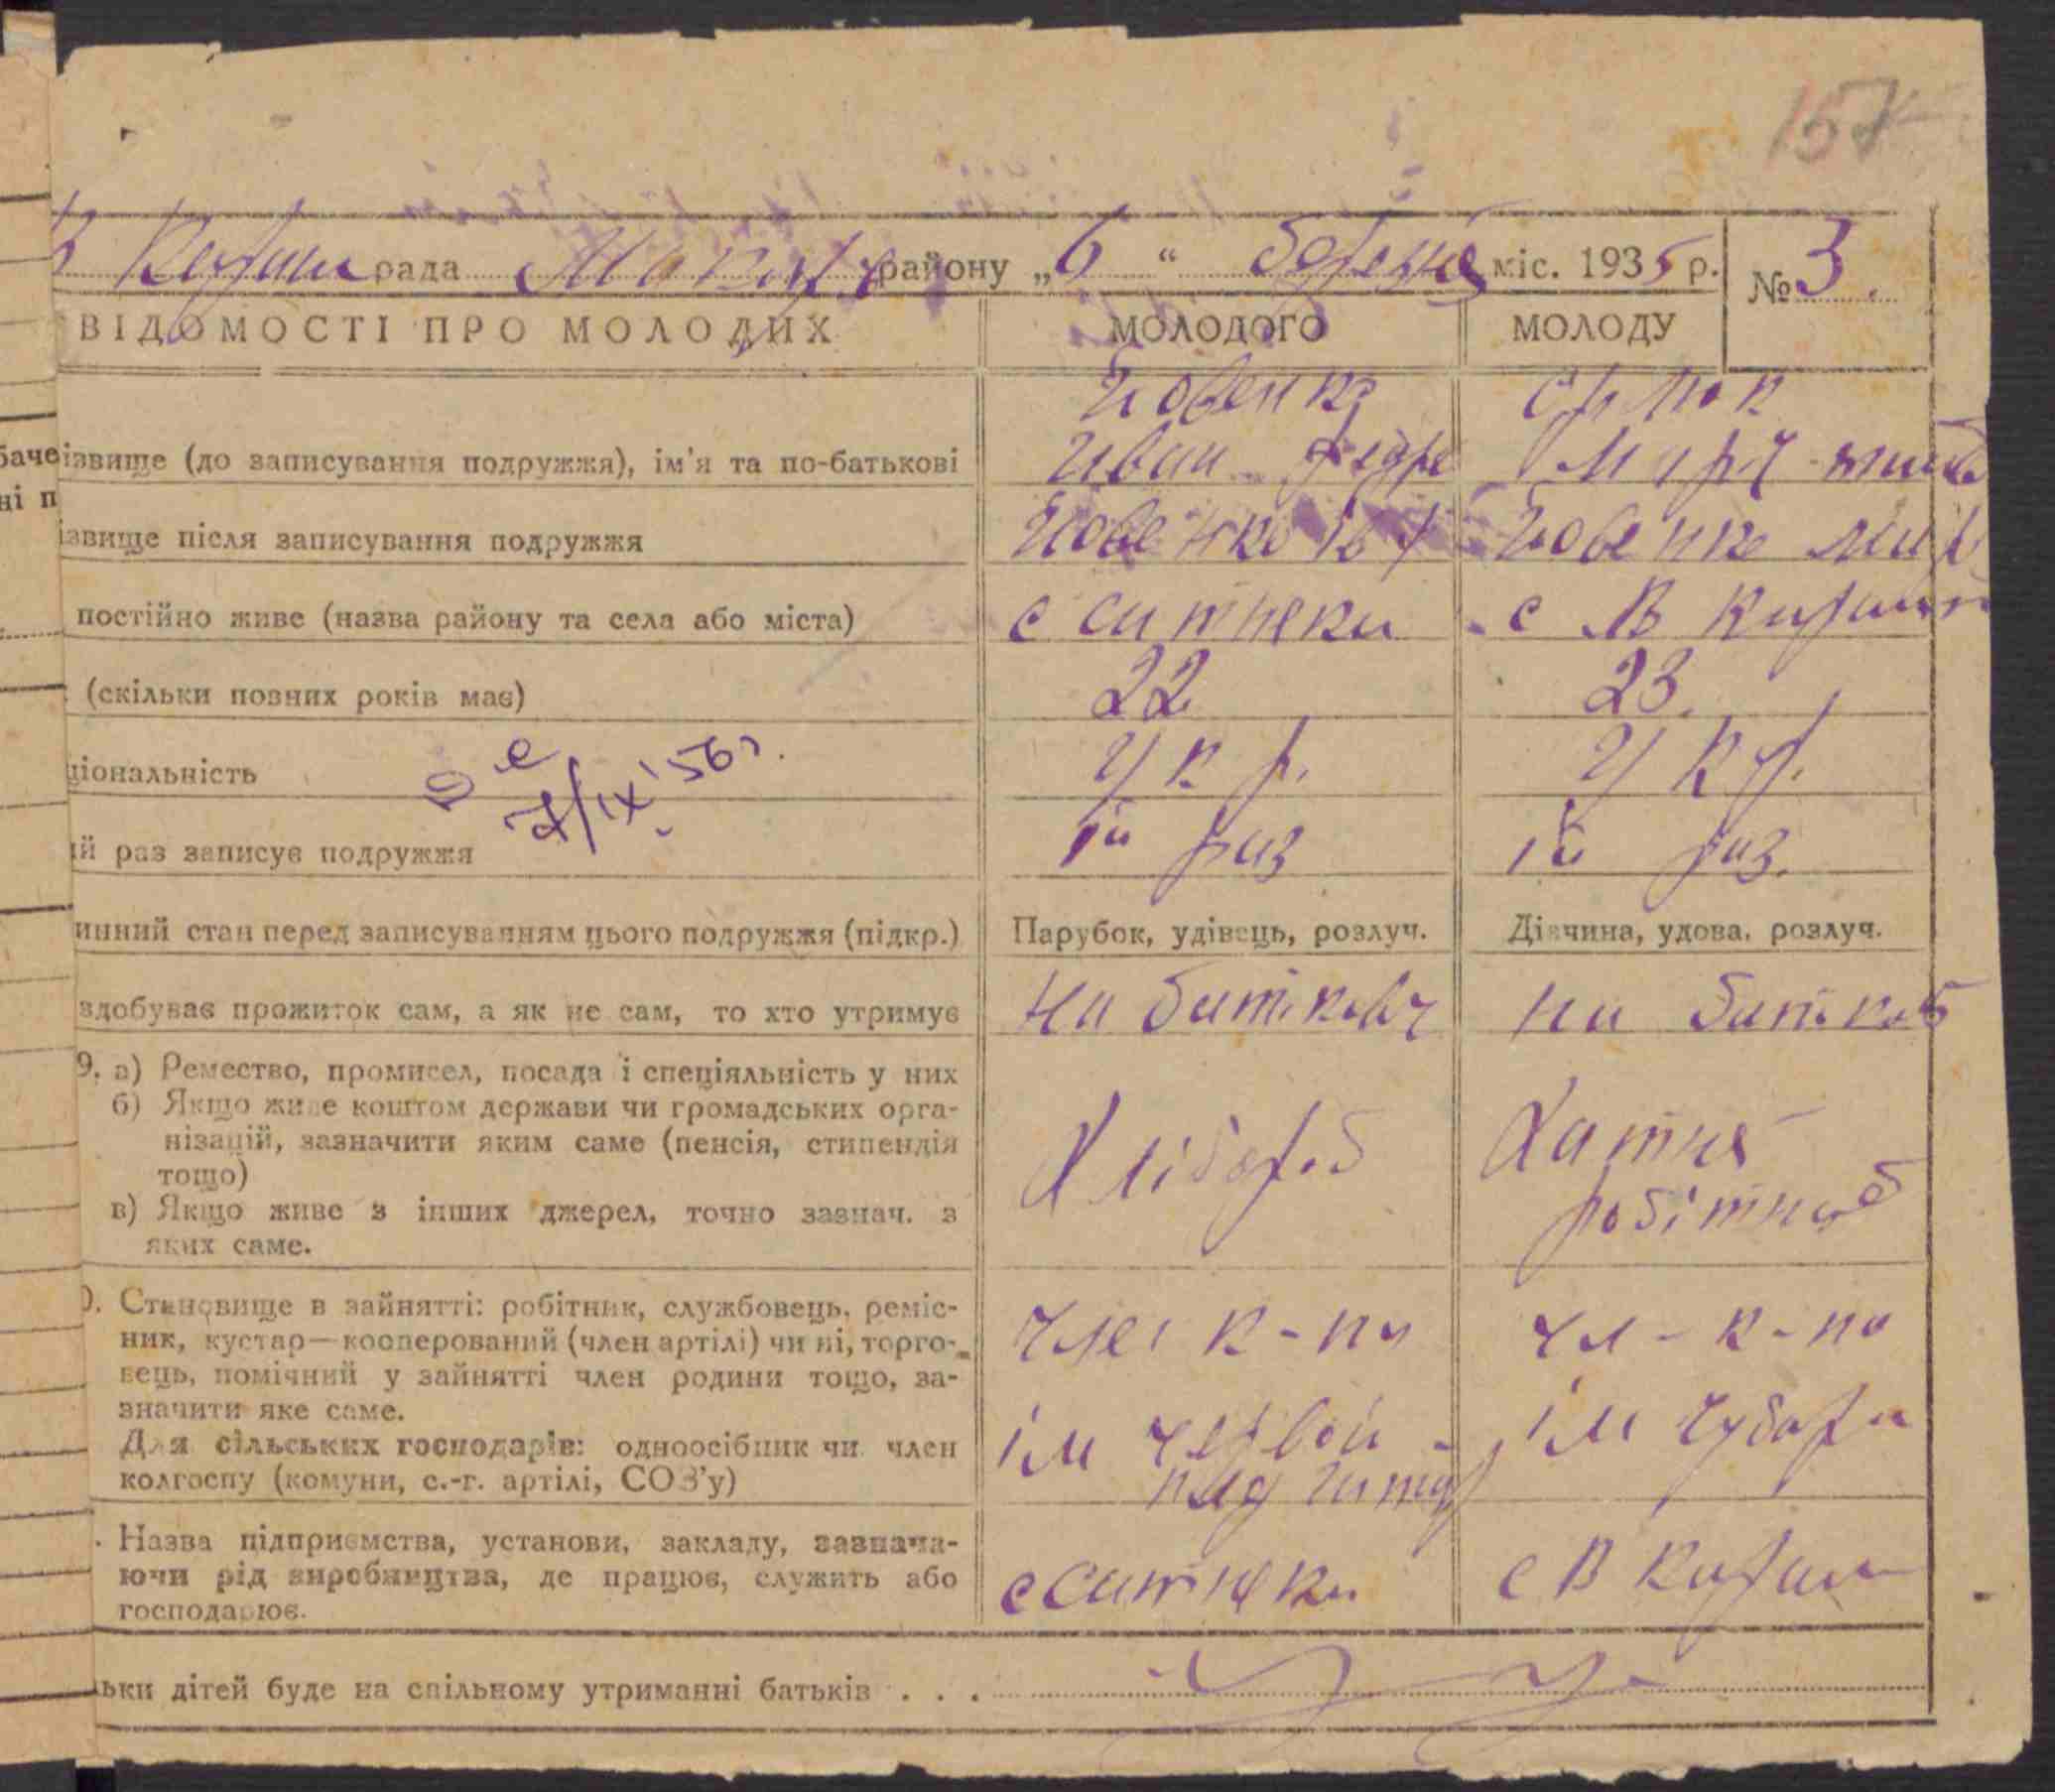 157
В Караш рада Макар району „6“ березня міс. 1935 р. № 3.
ВІДОМОСТІ ПРО МОЛОДИХ МОЛОДОГО МОЛОДУ
ізвище (до записування подружжя), ім'я та по-батькові
Иван Федре
ізвище після записування подружжя
постійно живе (назва району та села або міста) с Ситняки с В Караш
(скільки повних років має) 22 23.
ціональність Укр. Укр.
7/ІХ 56 г.
ій раз записує подружжя 1й раз 1й раз.
инний стан перед записуванням цього подружжя (підкр.) Парубок, удівець, розлуч. Дівчина, удова, розлуч.
здобуває прожиток сам, а як не сам, то хто утримує На батькові На батьков
9. а) Ремество, промисел, посада і спеціяльність у них
б) Якщо живе коштом держави чи громадських орга-
нізацій, зазначити яким саме (пенсія, стипендія
тощо)
в) Якщо живе з інших джерел, точно зазнач. з
яких саме.
Хлібороб Хатня
робітниц
0. Становище в зайнятті: робітник, службовець, реміс-
ник, кустар—кооперований (член артілі) чи ні, торго-
вець, помічний у зайнятті член родини тощо, за-
значити яке саме.
Для сільських господарів: одноосібник чи член
колгоспу (комуни, с.-г. артілі, СОЗ'у)
член к-пу чл-к-пу
ім Червон ім Чубаря
. Назва підприємства, установи, закладу, зазнача-
ючи рід виробництва, де працює, служить або
господарює.
с Ситняки с В Караш
ьки дітей буде на спільному утриманні батьків . . .